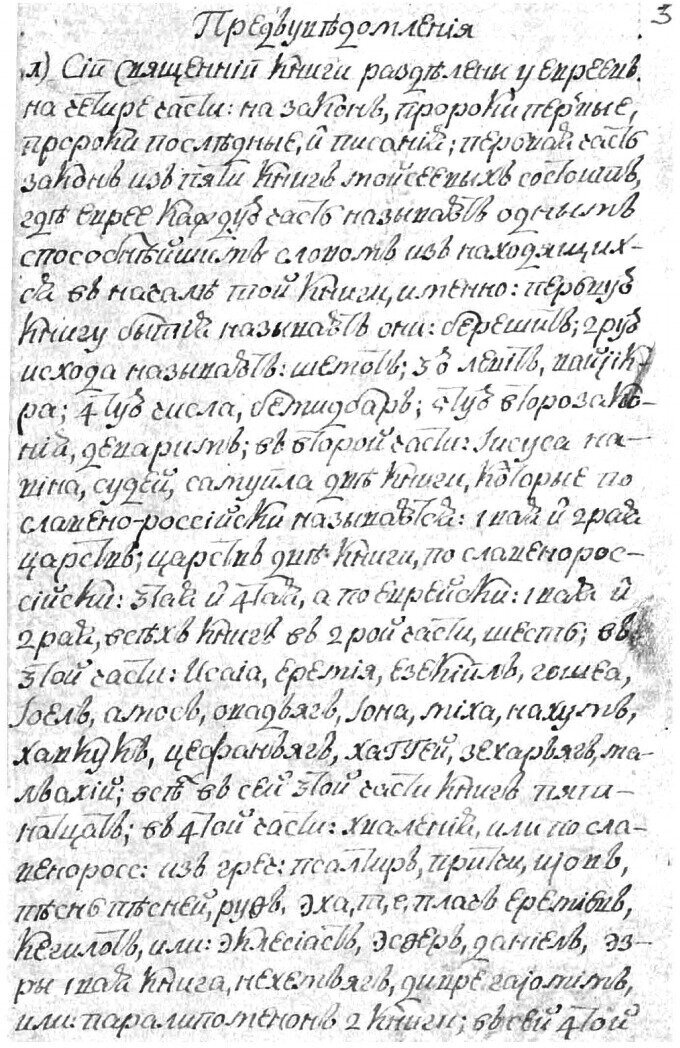 3
Предъувѣдомленія
1) Сіи священніи книги раздѣлени у евреевъ
на четире части: на законъ, пророки первые,
пророки послѣдные, и писаній; первая часть
законъ изъ пяти книгъ мойсеевыхъ состоитъ,
гдѣ еврее каждую часть называютъ однымъ
способнѣйшимъ словомъ изъ находящих-
ся въ началѣ той книги, именно: первую
книгу бытія называютъ они: берешитъ; 2рую
исхода называютъ: шемотъ; 3ю левитъ, ваиік-
ра; 4тую числа, бемидбаръ; 5тую второзако-
нія, деваримъ; въ второй части: Іисуса на-
вина, судей, самуила двѣ книги, которые по
славено-россійски называются: 1вая и 2рая
царствъ; царствъ двѣ книги, по славенорос-
сійски: 3тая и 4тая, а по еврейски: 1вая и
2рая, всѣхъ книгъ въ 2рой части, шесть; въ
3той части: Исаіа, еремія, езекіилъ, гошеа,
Іоелъ, амосъ, овадьягъ, Іона, миха, нахумъ,
хавкукъ, цефаньягъ, хаггей, зехарьягъ, ма-
льахій; всѣ въ сей 3той части книгъ пятн-
натцать; въ 4той части: хваленія, или по сла-
веноросс: изъ греч: псалтиръ, притчи, иіовъ,
пѣснь пѣсней, руѳъ, эха, т, е, плачъ еремііевъ,
кегилотъ, или: экклесіастъ, эсѳеръ, даніелъ, эз-
ры 1вая книга, нехемьягъ, дивре гаіомимъ,
или: паралипоменонъ 2 книги; въ сей 4той